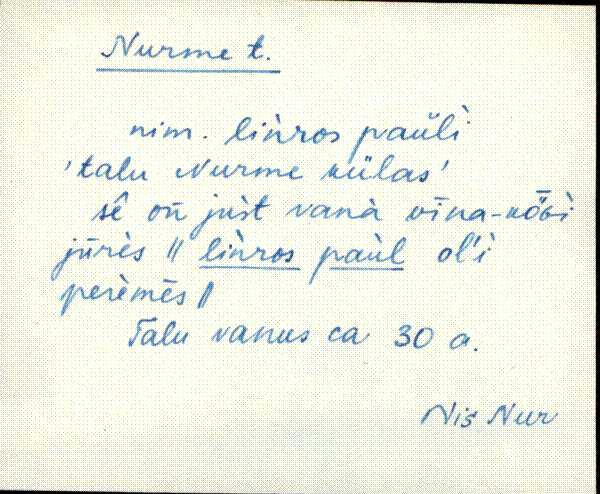 Nurme t.
nim. lìnros paŭlì
'talu Nurme külas'
sê oñ jùst vanà vīna-kȫ̀bì
jūrès // lìnros paùl ol'ì
perèmēs //
Talu vanus ca 30 a.
Nis Nur